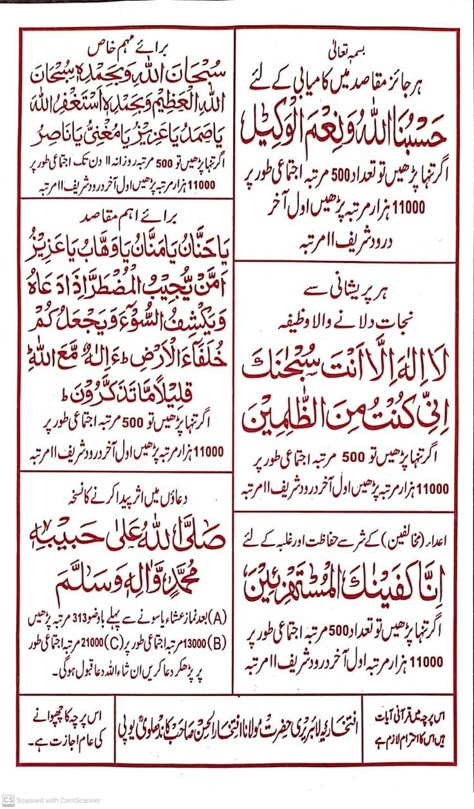 بسمہ تعالیٰ
ہر جائز مقاصد میں کامیابی کے لئے
حَسْبُنَا اللّٰهُ وَنِعْمَ الْوَكِيْلُ
اگر تنہا پڑھیں تو تعداد 500 مرتبہ اجتماعی طور پر
11000 ہزار مرتبہ پڑھیں اول آخر
درود شریف ۱۱ مرتبہ
ہر پریشانی سے
نجات دلانے والا وظیفہ
لَا اِلٰهَ اِلَّا اَنْتَ سُبْحٰنَكَ
اِنِّىْ كُنْتُ مِنَ الظّٰلِمِيْنَ
اگر تنہا پڑھیں تو 500 مرتبہ اجتماعی طور پر
11000 ہزار مرتبہ پڑھیں اول آخر درود شریف ۱۱ مرتبہ
اعداء (مخالفین) کے شر سے حفاظت اور غلبہ کے لئے
اِنَّا كَفَيْنٰكَ الْمُسْتَهْزِئِيْنَ
اگر تنہا پڑھیں تو تعداد 500 مرتبہ اجتماعی طور پر
11000 ہزار مرتبہ پڑھیں اول آخر درود شریف ۱۱ مرتبہ
برائے مہم خاص
سُبْحَانَ اللّٰهِ وَبِحَمْدِهٖ سُبْحَانَ
اللّٰهِ الْعَظِيْمِ وَبِحَمْدِهٖ اَسْتَغْفِرُ اللّٰهَ
يَاصَمَدُ يَاعَزِيْزُ يَامُغْنِىُ يَانَاصِرُ
اگر تنہا پڑھیں تو 500 مرتبہ روزانہ ۱۱ دن تک اجتماعی طور پر
11000 ہزار مرتبہ پڑھیں اول آخر درود شریف ۱۱ مرتبہ
برائے اہم مقاصد
يَاحَنَّانُ يَامَنَّانُ يَاوَهَّابُ يَاعَزِيْزُ
اَمَّنْ يُّجِيْبُ الْمُضْطَرَّ اِذَا دَعَاهُ
وَيَكْشِفُ السُّوْٓءَ وَيَجْعَلُكُمْ
خُلَفَآءَ الْاَرْضِ ط ءَاِلٰهٌ مَّعَ اللّٰهِ ط
قَلِيْلًا مَّا تَذَكَّرُوْنَ ط
اگر تنہا پڑھیں تو 500 مرتبہ اجتماعی طور پر
11000 ہزار مرتبہ پڑھیں اول آخر درود شریف ۱۱ مرتبہ
دعاؤں میں اثر پیدا کرنے کا نسخہ
صَلَّى اللّٰهُ عَلٰى حَبِيْبِهٖ
مُحَمَّدٍ وَّاٰلِهٖ وَسَلَّمَ
(A) بعد نماز عشاء یا سونے سے پہلے باوضو 313 مرتبہ پڑھیں
(B) 13000 مرتبہ اجتماعی طور پر (C) 21000 مرتبہ اجتماعی طور
پر پڑھ کر دعا کریں ان شاء اللہ دعا قبول ہوگی۔
اس پرچہ میں قرآنی آیات
ہیں اس کا احترام لازم ہے
افتخاریہ لائبریری حضرت مولانا افتخار الحسن صاحب کاندھلویؒ یوپی
اس پرچہ کا چھپوانے
کی عام اجازت ہے۔
CS Scanned with CamScanner